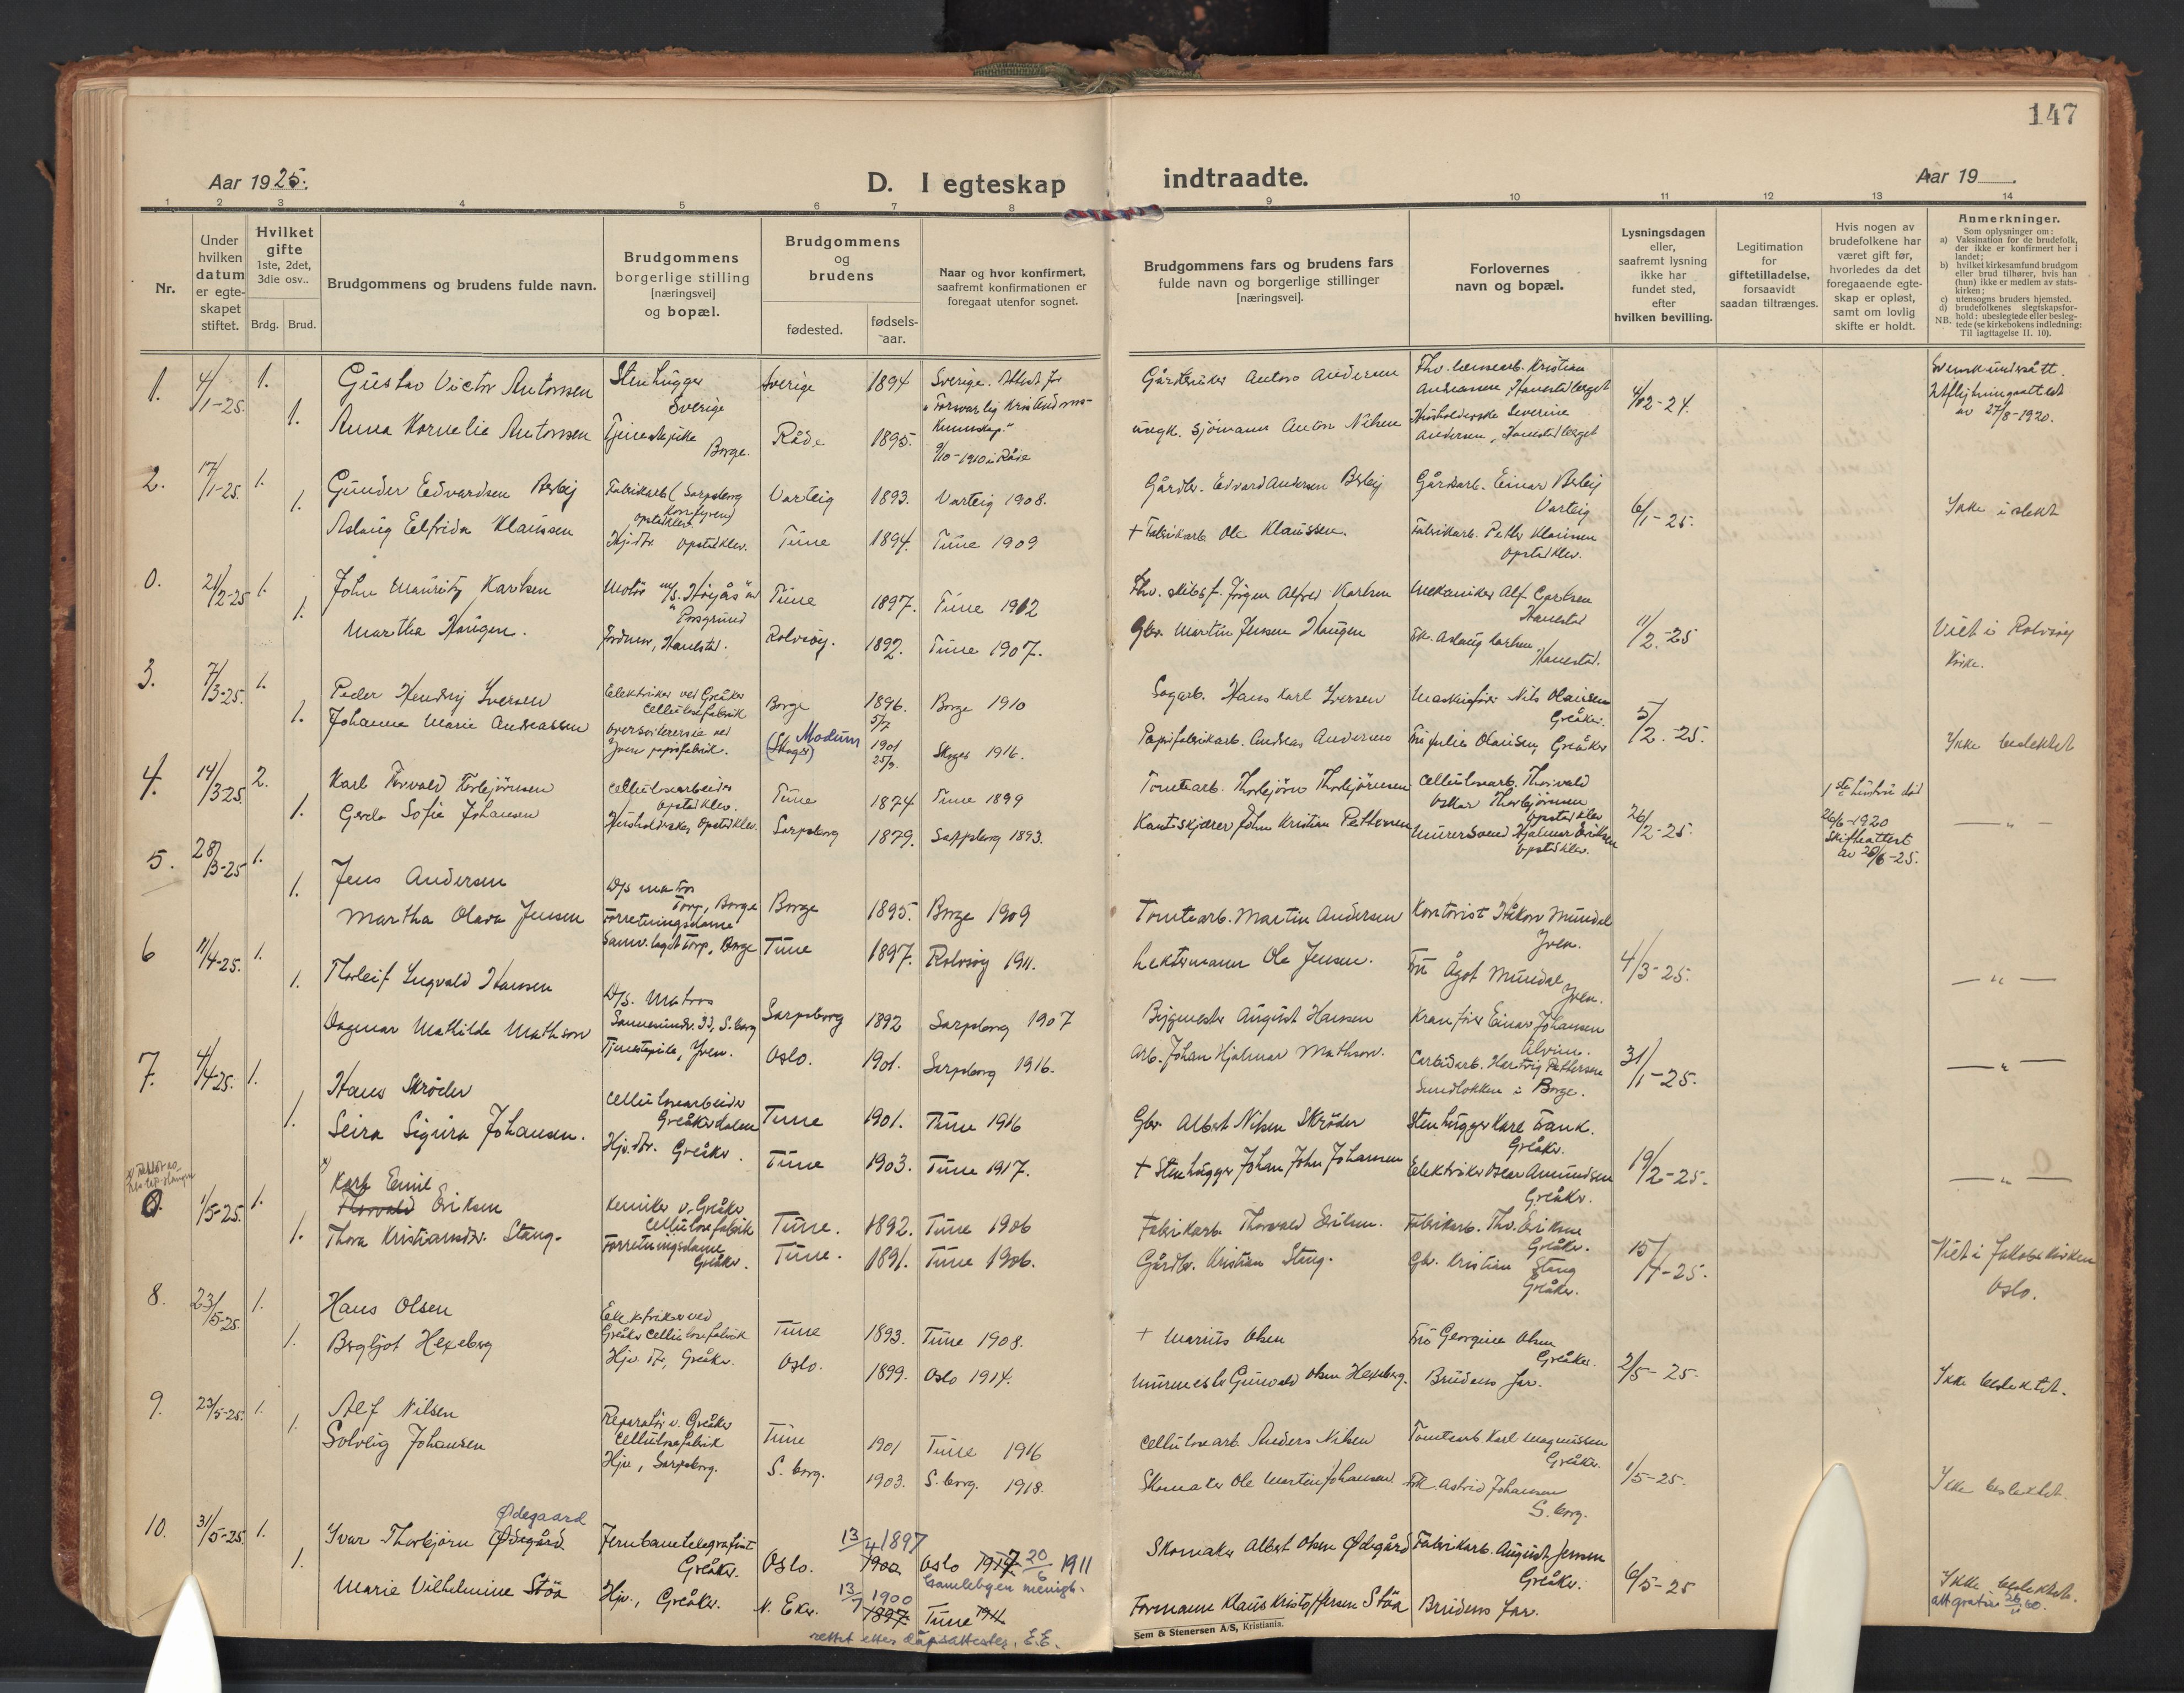 147
Aar 1925.
D. I egteskap indtraadte.
Aar 19
1 2 3 4 5 6 7 8 9 10 11 12 13 14
Nr.
Under hvilken datum er egteskapet stiftet.
Hvilket gifte 1ste, 2det, 3die osv..
Brdg. Brud.
Brudgommens og brudens fulde navn.
Brudgommens borgerlige stilling [næringsvei] og bopæl.
Brudgommens og brudens
fødested.
fødsels-aar.
Naar og hvor konfirmert, saafremt konfirmationen er foregaat utenfor sognet.
Brudgommens fars og brudens fars fulde navn og borgerlige stillinger [næringsvei].
Forlovernes navn og bopæl.
Lysningsdagen eller, saafremt lysning ikke har fundet sted, efter hvilken bevilling.
Legitimation for giftetilladelse, forsaavidt saadan tiltrænges.
Hvis nogen av brudefolkene har været gift før, hvorledes da det foregaaende egteskap er opløst, samt om lovlig skifte er holdt.
Anmerkninger.
Som oplysninger om:
a) Vaksination for de brudefolk, der ikke er konfirmert her i landet;
b) hvilket kirkesamfund brudgom eller brud tilhører, hvis han (hun) ikke er medlem av statskirken;
c) utensogns bruders hjemsted.
d) brudefolkenes slegtskapsforhold: ubeslegtede eller beslegtede (se kirkebokens indledning: Til iagttagelse II. 10).
NB.
1. 4/1-25. 1. Gustav Victor Antonsen Stenhugger Sverige Sverige 1894 Sverige. Attest for "Forsvarlig Kristendomskunnskap." Gårdbruker Anton Andersen Kristian Andreassen 4/12-24. Svensk undersått. Utflytningsattest av 27/8-1920.
1. Anna Kornelie Antonsen Tjenestepike Borge. Råde 1895. 9/10-1910 i Råde ungk. sjömann Anton Nilsen Husholderske Severine Andersen
2. 17/1-25. 1. Gunder Edvardsen Bergby Fabrikarb. Sarpsborg Varteig 1893. Varteig 1908. Gårdbr. Edvard Andersen Gårdarb. Einar Varteig 6/1-25. Ikke i slekt
1. Aslaug Elfrida Klaussen Hj. dtr. Opstadklev. Tune 1894. Tune 1909 + Fabrikarb. Ole Klaussen. Fabrikarb. Petter Klausen Opstadklev.
0. 21/2-25 1. John Mauritz Karlsen Porsgrund Tune 1897. Tune 1912 Jörgen Alfred Karlsen Mekaniker Alf Carlsen Hanestad 11/2-25 Viet i Rolvsöy Kirke.
1. Martha Haugen. Jordmor, Hanestad. Rolvsöy. 1892. Tune 1907. Gbr. Martin Jensen Haugen Frk. Aslaug Karlsen Hanestad.
3. 7/3-25. 1. Peder Hendrij Iversen Elektriker ved Greåker cellulosefabrik Borge 1896. 5/7 Borge 1910 Sagarb. Hans Karl Iversen Maskinförer Nils Olausen Greåker. 5/2-25. Ikke beslektet
1. Johanne Marie Andreassen ved Yven papirfabrik. (Skoger) Modum 1901 25/9. Skoger 1916. Papirfabrikarb. Andreas Andersen Fru Julie Olausen, Greåker
4. 14/3-25 2. Karl Torvald Torbjörnsen Cellulosearbeider Opstadklev. Tune 1874 Tune 1899 Tomtearb. Thorbjörn Thorbjörnsen Cellulosearb. Thorvald Oskar Thorbjörnsen Opstadklev 26/2-25. 1ste hustru död 26/6-1920 Skifteattest av 26/6-25. — " —
1. Gerda Sofie Johansen Husholderske, Opstadklev. Sarpsborg 1879. Sarpsborg 1893. Kantskjærer John Kristian Pettersen Murersvend Hjalmar Eriksen Opstadklev.
5. 28/3-25 1. Jens Andersen D/s matros Torp, Borge Borge 1895. Borge 1909 Tomtearb. Martin Andersen Kontorist Håkon Mundal Yven. 4/3-25. — " —
1. Martha Olava Jensen Forretningsdame Samv.laget Torp, Borge Tune 1897. Rolvsöy 1911. Lektermann Ole Jensen. Fru Ågot Mundal Yven.
6 11/4-25. 1. Thorleif Ingvald Hansen D/s. Matros S.borg Sarpsborg 1892 Sarpsborg 1907 Bygmester August Hansen Kranförer Einar Johansen Alvim. 31/1-25. — " —
1. Dagmar Mathilde Mathson Tjenestepike, Yven. Oslo. 1901. Sarpsborg 1916. Arb. Johan Hjalmar Mathson. Carbidarb. Hartvig Pettersen Sundlökken i Borge.
7. 4/4-25. 1. Hans Skröder Cellulosearbeider Greåkerdalen Tune 1901. Tune 1916 Gbr. Albert Nilsen Skröder Stenhugger Karl Frank. Greåker. 19/2-25. — " —
1. Seira Sigura Johansen. Hjv. dtr. Greåker. Tune 1903. Tune 1917. + Stenhugger Johan John Johansen Elektriker Oscar Amundsen Greåker.
0. 1/5-25. 1. x) Karl Emil Thorvald Eriksen Kemiker v. Greåker Cellulosefabrik Tune. 1892. Tune 1906 Fabrikarb. Thorvald Eriksen. Fabrikarb. Thv. Eriksen Greåker. 15/4-25. Viet i Jakobskirken Oslo.
1. Thora Kristiansdtr. Stang. Forretningsdame Greåker. Tune. 1891. Tune 1906. Gårdbr. Kristian Stang. Gbr. Kristian Stang Greåker.
8. 23/5-25. 1. Hans Olsen Elektriker ved Greåker Cellulosefabrik Tune 1893. Tune 1908. + Marius Olsen Fru Georgine Olsen Greåker. 2/5-25. Ikke beslektet.
1. Bergljot Hexeberg Hjv. dtr, Greåker. Oslo. 1899. Oslo 1914. Murmester Gunvald Olsen Hexeberg. Brudens far.
9. 23/5-25. 1. Alf Nilsen Reparatör v. Greåker Cellulosefabrik Tune 1901 Tune 1916 Cellulosearb. Anders Nilsen Tomtearb. Karl Magnussen Greåker. 1/5-25. Ikke beslektet.
1. Solveig Johansen Hjv, Sarpsborg. S.borg. 1903. S.borg. 1918. Skomaker Ole Martin Johansen Frk. Astrid Johansen S.borg.
10. 31/5-25. 1. Ivar Thorbjörn Ødegård Ødegaard Jernbanetelegrafist Greåker. Oslo. 13/4 1897 1900 Oslo 1917 20/6 1911 Gamlebyen menigh. Skomaker Albert Olsen Ødegård Fabrikarb. August Jensen Greåker. 6/5-25 Ikke beslektet.
1. Marie Vilhelmine Stöa Hjv., Greåker. N. Eker. 13/7 1900 1897 Tune 1911 Formann Klaus Kristoffersen Stöa Brudens far.
rettet etter dåpsattester. E.E.
Sem & Stenersen A/S, Kristiania.